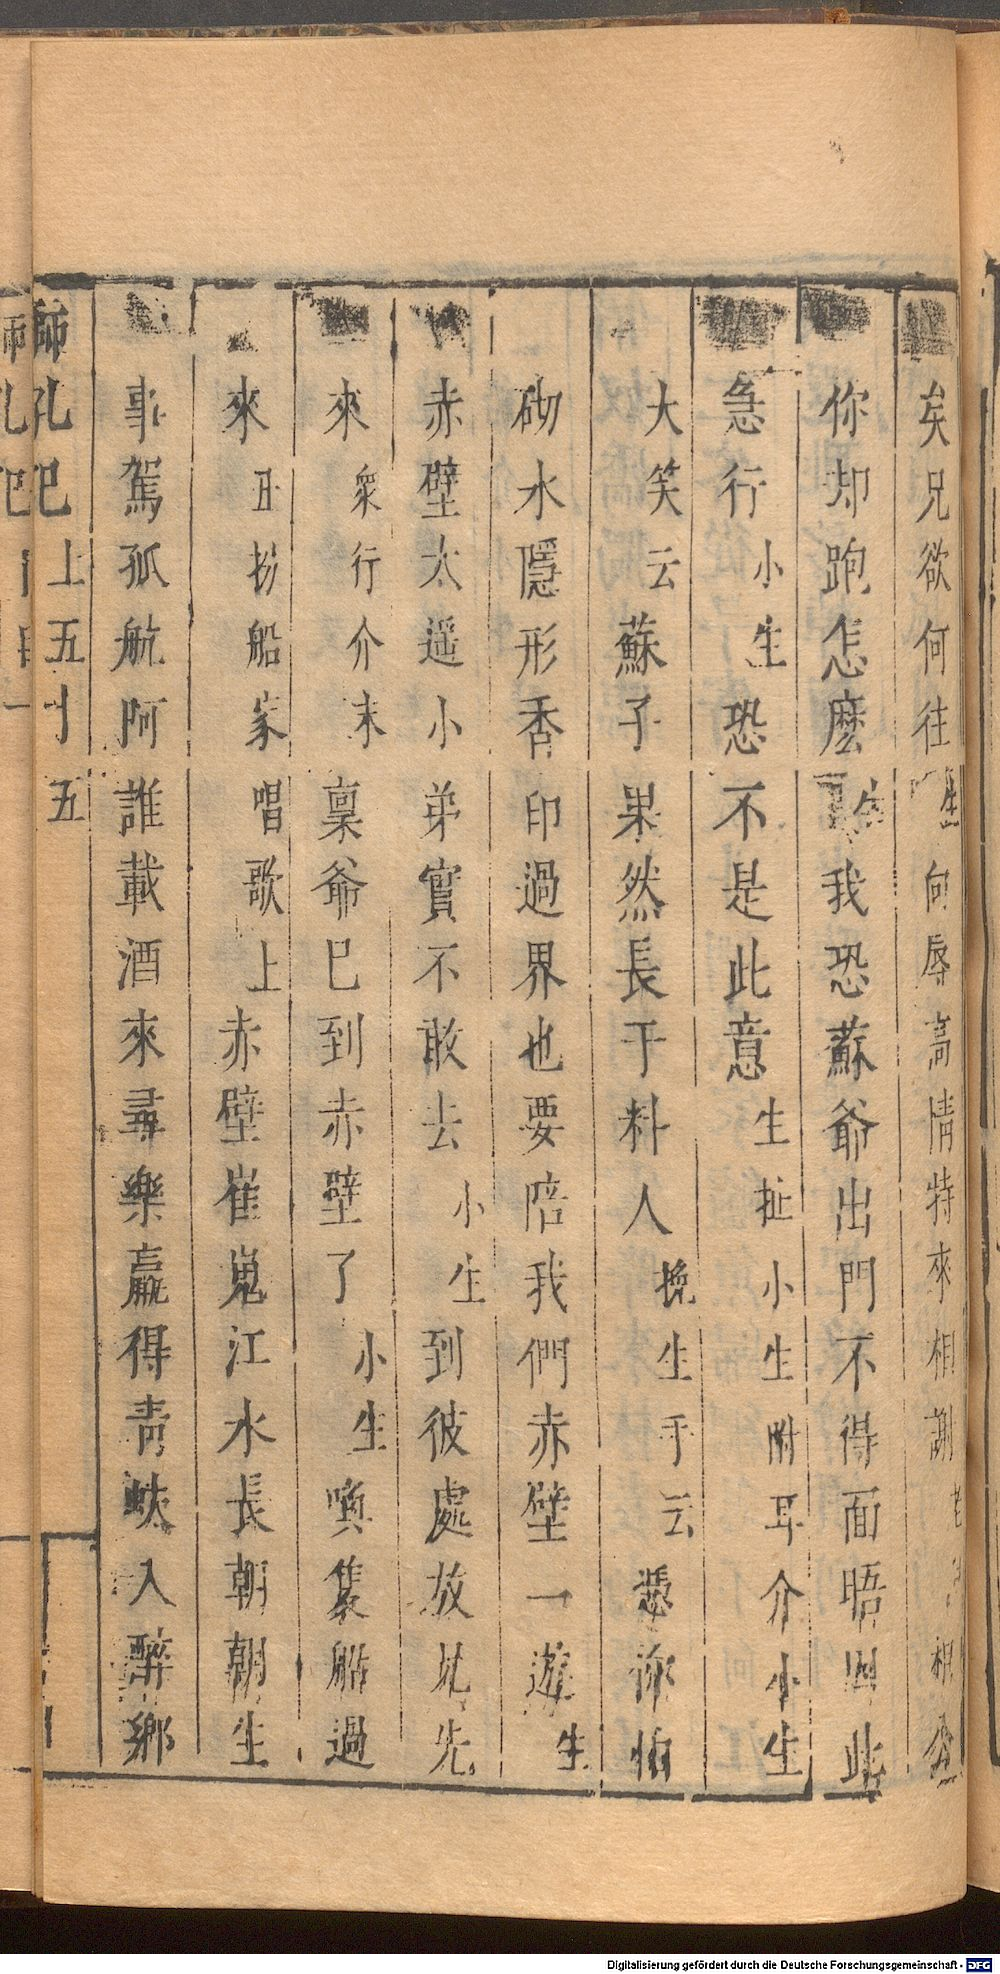 矣兄欲何往生向辱高情特來相謝
你却跑怎麽我恐蘇爺出門不得面晤因此
急行小生恐不是此意生扯小生附耳介小生
大笑云蘇子果然長于料人挽生手云慿你怕
砌水隱形香印過界也要陪我們赤壁一遊生
赤壁太遥小弟實不敢去小生到彼處放兄先
來衆行介末稟爺巳到赤壁了小生喚集船過
來丑扮船家唱歌上赤壁崔嵬江水長朝朝生
事駕孤航阿誰載酒來尋樂贏得靑蚨入醉鄉
師孔巴上五十五
Digitalisierung gefördert durch die Deutsche Forschungsgemeinschaft - DFG